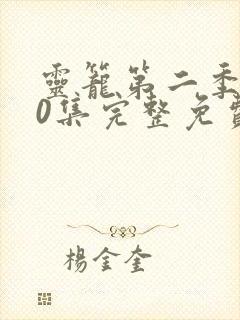 靈籠第二季
0集完整免費
楊金奎